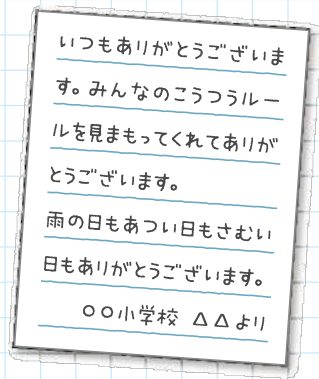 いつもありがとうございま
す。みんなのこうつうルー
ルを見まもってくれてありが
とうございます。
雨の日もあつい日もさむい
日もありがとうございます。
○○小学校 △△より